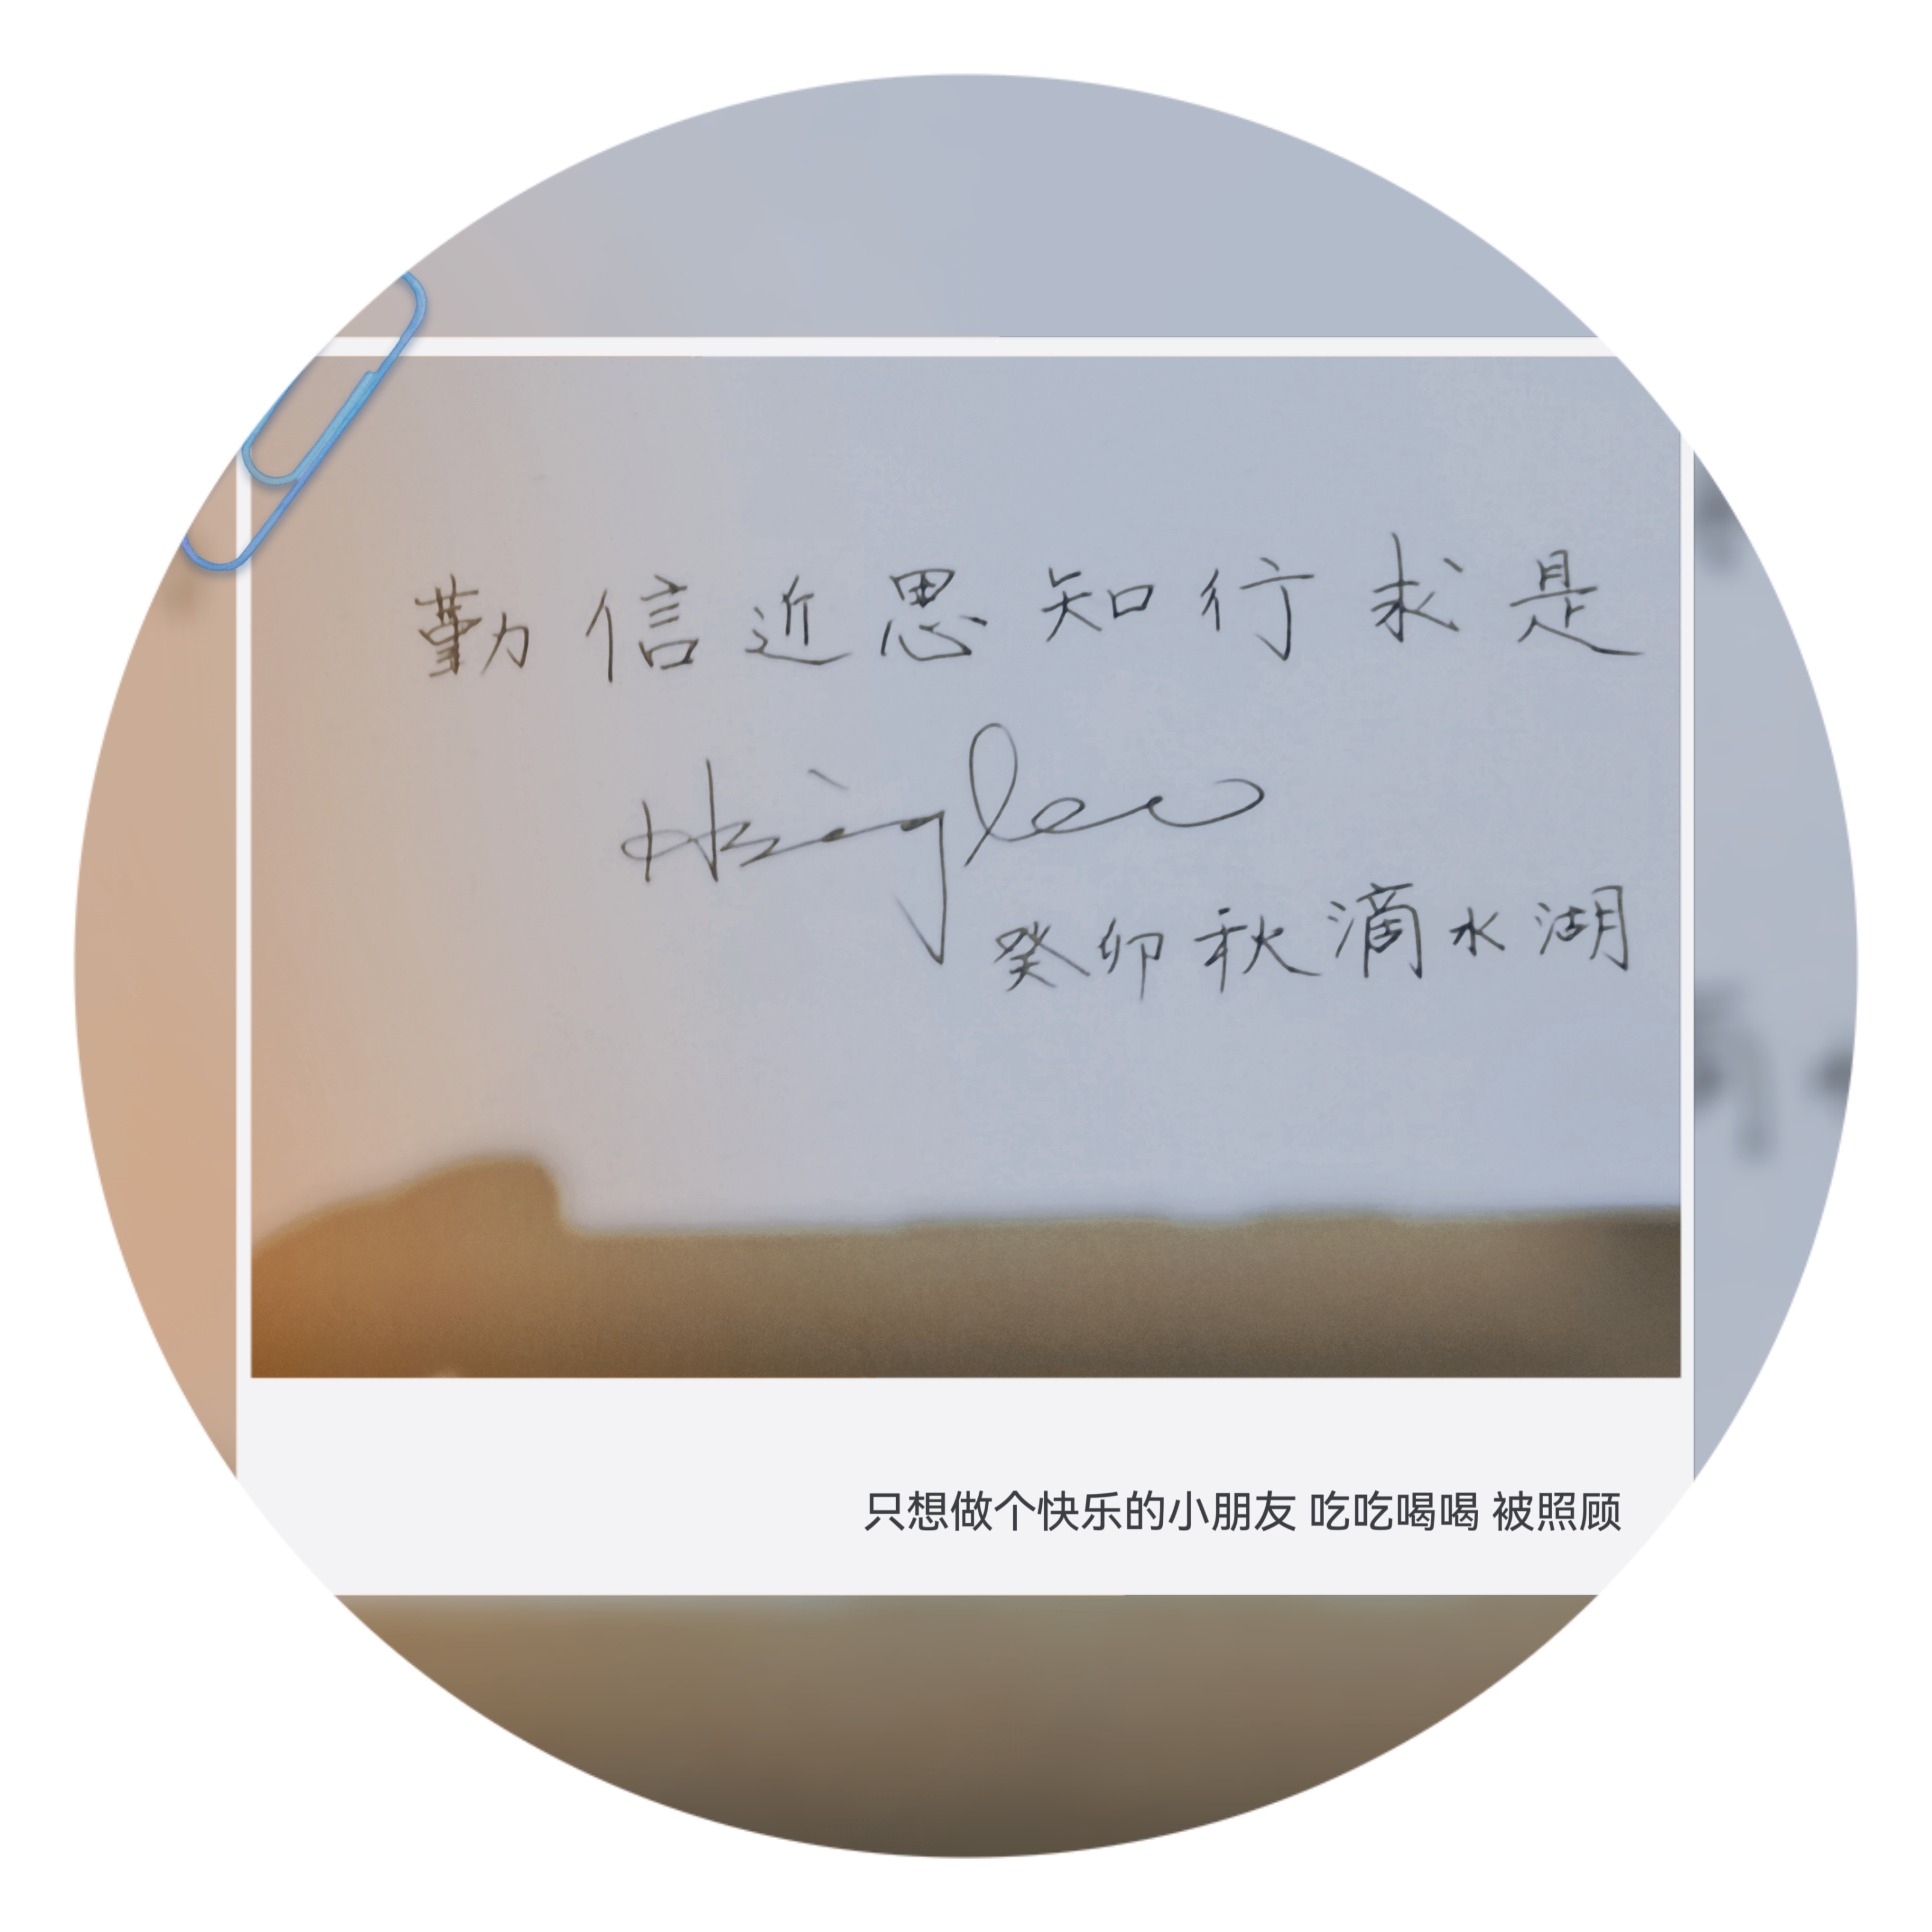 勤信近思知行求是
癸卯秋滴水湖
只想做个快乐的小朋友 吃吃喝喝 被照顾